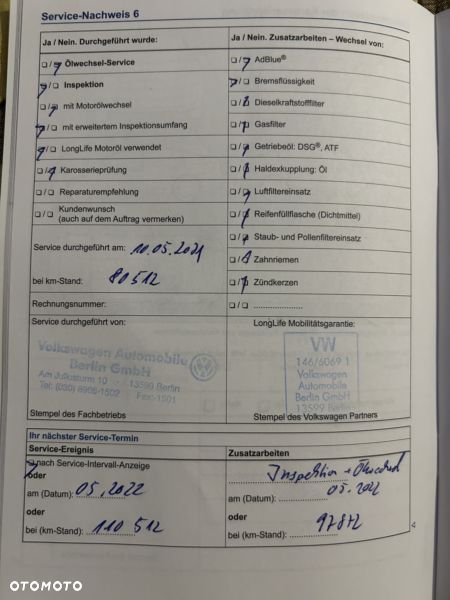 Service-Nachweis 6
Ja / Nein. Durchgeführt wurde:
Ölwechsel-Service
Inspektion
mit Motorölwechsel
mit erweitertem Inspektionsumfang
LongLife Motoröl verwendet
Karosserieprüfung
Reparaturempfehlung
Kundenwunsch
(auch auf dem Auftrag vermerken)
Service durchgeführt am: 10.05.2021
bei km-Stand: 80512
Rechnungsnummer:
Service durchgeführt von:
Volkswagen Automobile
Berlin GmbH
Am Juliusturm 10 · 13599 Berlin
Stempel des Fachbetriebs
Ja / Nein. Zusatzarbeiten – Wechsel von:
AdBlue®
Bremsflüssigkeit
Dieselkraftstofffilter
Gasfilter
Getriebeöl: DSG®, ATF
Haldexkupplung: Öl
Luftfiltereinsatz
Reifenfüllflasche (Dichtmittel)
Staub- und Pollenfiltereinsatz
Zahnriemen
Zündkerzen
LongLife Mobilitätsgarantie:
VW
146/6069 1
Volkswagen
Automobile
Berlin GmbH
13599 Berlin
Stempel des Volkswagen Partners
Ihr nächster Service-Termin
Service-Ereignis
nach Service-Intervall-Anzeige
oder
am (Datum): 05,2022
oder
bei (km-Stand): 110 512
Zusatzarbeiten
Inspektion + Ölwechsel
am (Datum): 05.2022
oder
bei (km-Stand):
OTOMOTO